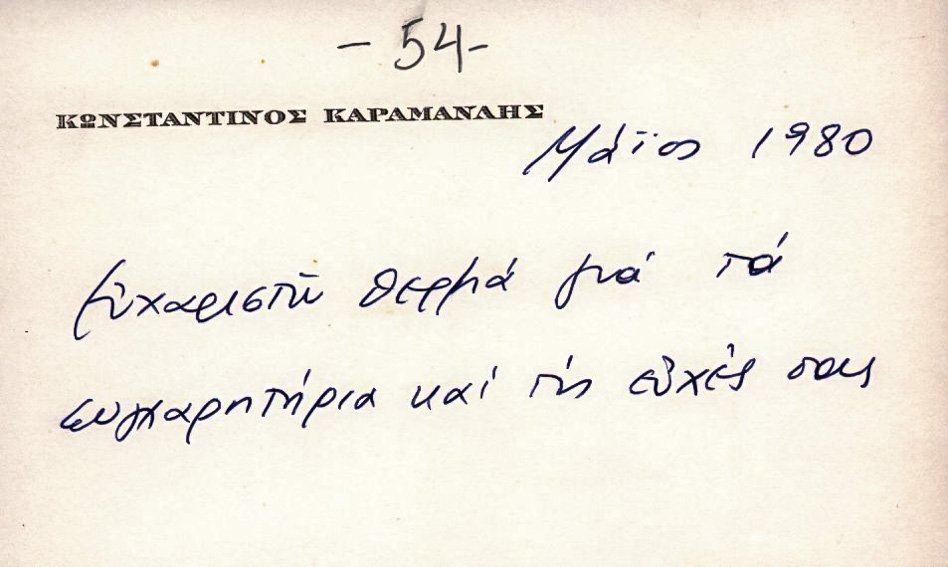 - 54 -
ΚΩΝΣΤΑΝΤΙΝΟΣ ΚΑΡΑΜΑΝΛΗΣ
Μάϊος 1980
Εὐχαριστῶ θερμά γιά τά
συγχαρητήρια καί τίς εὐχές σας